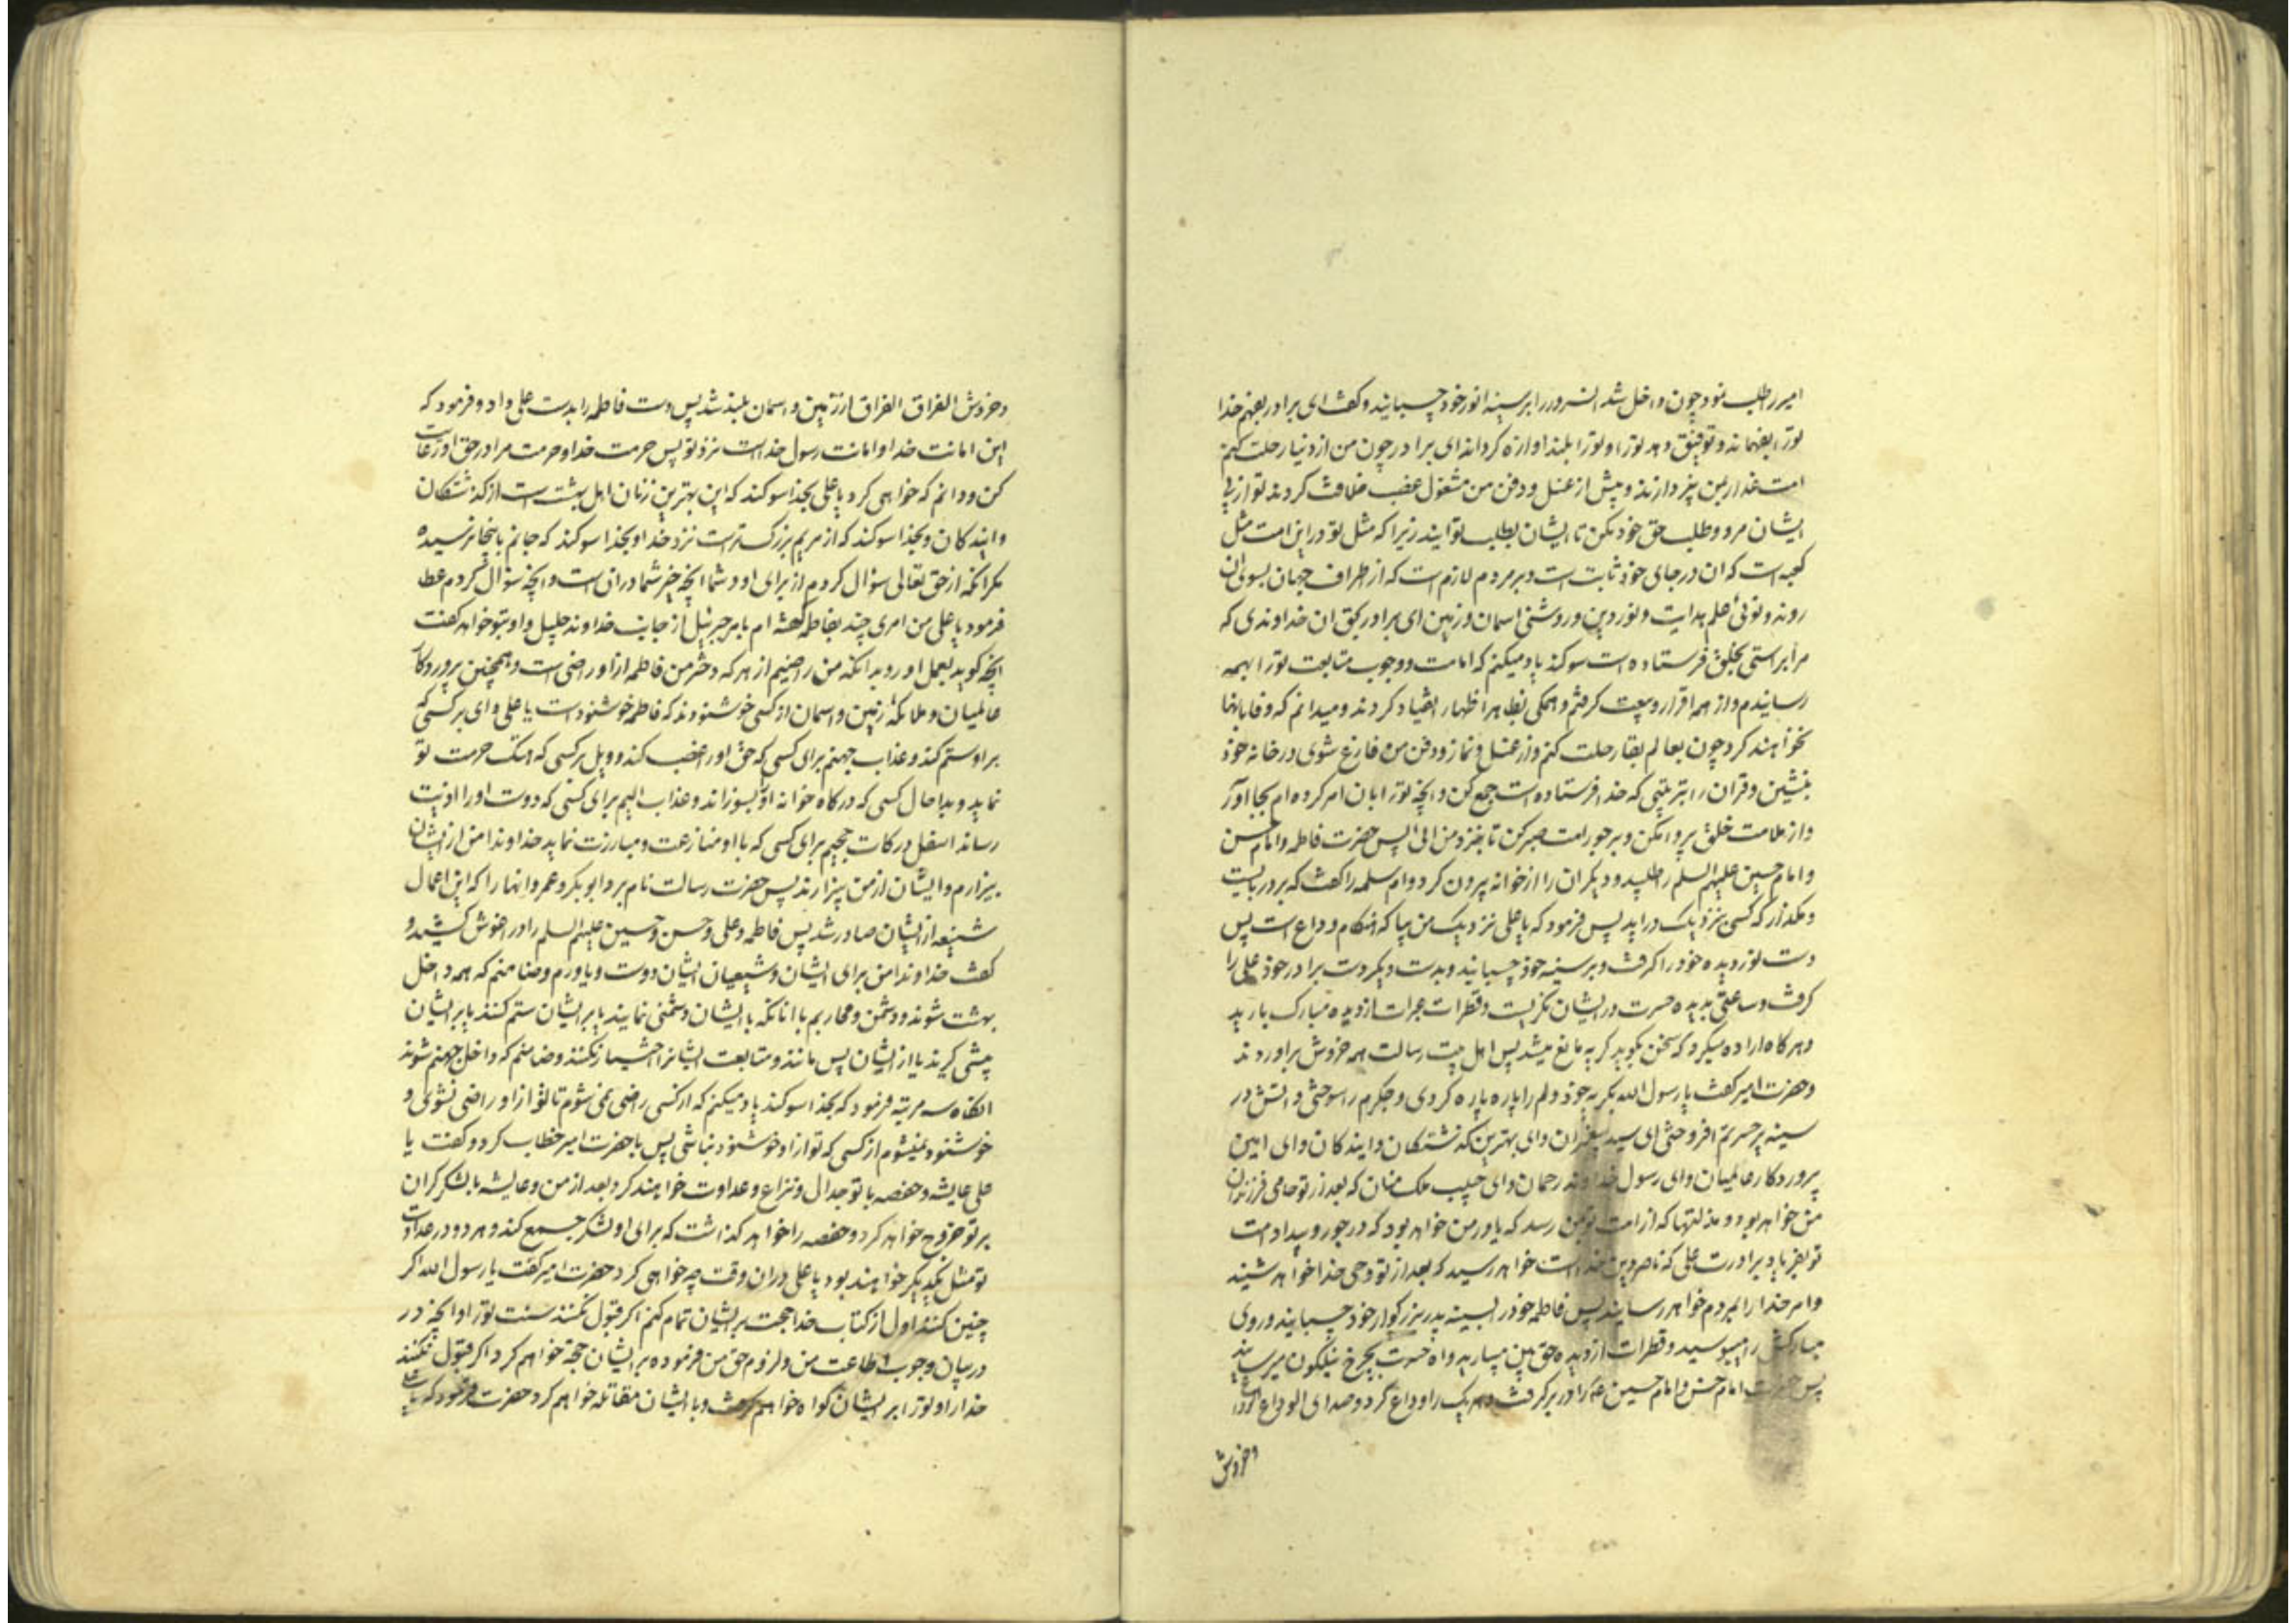 امیر را طلب نمود چون داخل شد انسرور را بر سینه انور خود چسبانید و گفت ای برادر بفهم خدا
تو را بفهماند و توفیق دهد تو را و تو را بلند اوازه کرداند ای برادر چون من از دنیا رحلت کنم
امت غدار بمن نپردازند و پیش از غسل و دفن من مشغول غصب خلافت کردند تو از پی
ایشان مرو و طلب حق خود مکن تا ایشان بطلب تو ایند زیرا که مثل تو در این امت مثل
کعبه است که ان در جای خود ثابت است و بر مردم لازم است که از اطراف جهان بسوی ان
روند و توئی علم هدایت و نور دین و روشنی اسمان و زمین ای برادر بحق ان خداوندی که
مرا براستی بخلق فرستاده است سوکند یاد میکنم که امامت و وجوب متابعت تو را بهمه
رسانیدم و از همه اقرار و بیعت کرفتم و همکی بظاهر اظهار انقیاد کردند و میدانم که وفا بانها
نخواهند کرد چون بعالم بقا رحلت کنم و از غسل و نماز و دفن من فارغ شوی در خانه خود
بنشین و قران را بترتیبی که خدا فرستاده است جمع کن و انچه تو را بان امر کرده ام بجا اور
و از ملامت خلق پروا مکن و بر جور امت صبر کن تا بنزد من ائی پس حضرت فاطمه و امام حسن
و امام حسین علیهم السلم را طلبید و دیکران را از خوانه بیرون کرد و ام سلمه را گفت که بر در بایست
و مکذار که کسی نزدیک در اید پس فرمود که یا علی نزدیک من بیا که هنکام وداع است پس
دست نور دیده خود را کرفت و بر سینه خود چسبانید و بدست دیکر دست برادر خود علی را
کرفت و ساعتی بدیده حسرت در ایشان نکریست و قطرات عبرات از دیده مبارک بارید
و هر کاه اراده میکرد که سخن بکوید کریه مانع میشد پس اهل بیت رسالت همه خروش براوردند
و حضرت امیر گفت یا رسول الله بکریه خود دلم را پاره پاره کردی و جکرم را سوختی و اتش در
سینه پر حسرتم افروختی ای سید پیغمبران و ای بهترین کذشتکان و ایندکان و ای امین
پروردکار عالمیان و ای رسول خداوند رحمان و ای حبیب ملک منان که بعد از تو حامی فرزندان
من خواهد بود و مذلتها که از امت تو بمن رسد که یاور من خواهد بود که در جور و بیداد امت
تو بفریاد برادرت علی که ناصر دین خداست خواهد رسید که بعد از تو وحی خدا خواهد شنید
و امر خدا را بمردم خواهد رسانید پس فاطمه خود را بسینه پدر بزرکوار خود چسبانید و روی
مبارکش را میبوسید و قطرات از دیده حق بین میبارید و اه حسرت بچرخ نیلکون میرسانید
پس حضرت امام حسن و امام حسین را در بر کرفت و هر یک را وداع کرد و صدای الوداع الوداع
و خروش
و خروش الفراق الفراق از زمین و اسمان بلند شد پس دست فاطمه را بدست علی داد و فرمود که
این امانت خدا و امانت رسول خداست نزد تو پس حرمت خدا و حرمت مرا در حق او رعایت
کن و دانم که خواهی کرد یا علی بخدا سوکند که این بهترین زنان اهل بهشت است از کذشتکان
و ایندکان و بخدا سوکند که از مریم بزرکتر است نزد خدا و بخدا سوکند که جانم باینجا نرسیده
مکر انکه از حق تعالی سؤال کردم از برای او و شما انچه خیر شما در ان است و انچه سؤال کردم عطا
فرمود یا علی من امری چند بفاطمه گفته ام بامر جبرئیل از جانب خداوند جلیل و او بتو خواهد گفت
انچه کوید بعمل اور و بدانکه من راضیم از هر که دختر من فاطمه از او راضی است و همچنین پروردکار
عالمیان و ملائکه زمین و اسمان از کسی خوشنودند که فاطمه خوشنود است یا علی وای بر کسی که
بر او ستم کند و عذاب جهنم برای کسی که حق او را غصب کند و ویل بر کسی که هتک حرمت تو
نماید و بدا حال کسی که درکاه خوانه او بسوزاند و عذاب الیم برای کسی که دوست او را اذیت
رساند اسفل درکات جحیم برای کسی که با او منازعت و مبارزت نماید خداوندا من از ایشان
بیزارم و ایشان از من بیزارند پس حضرت رسالت نام برد ابو بکر و عمر و انها را که این اعمال
شنیعه از ایشان صادر شد پس فاطمه و علی و حسن و حسین علیهم السلم را در اغوش کشید و
گفت خداوندا من برای ایشان و شیعیان ایشان دوست و یاورم و ضامنم که همه داخل
بهشت شوند و دشمن و محاربم با انانکه با ایشان دشمنی نمایند یا بر ایشان ستم کنند یا بر ایشان
پیشی کیرند یا از ایشان پس مانند و متابعت ایشانرا اختیار نکنند و ضامنم که داخل جهنم شوند
انکاه سه مرتبه فرمود که بخدا سوکند یاد میکنم که از کسی راضی نمی شوم تا تو از او راضی نشوی و
خوشنود نمیشوم از کسی که تو از او خوشنود نباشی پس با حضرت امیر خطاب کرد و گفت یا
علی عایشه و حفصه با تو جدال و نزاع و عداوت خواهند کرد بعد از من و عایشه با لشکر کران
بر تو خروج خواهد کرد و حفصه را خواهد کذاشت که برای او لشکر جمع کند و هر دو در عداوت
تو مثل یکدیکر خواهند بود یا علی در ان وقت چه خواهی کرد حضرت امیر گفت یا رسول الله اکر
چنین کنند اول از کتاب خدا حجت بر ایشان تمام کنم اکر قبول نکنند سنت تو را و انچه در
در بیان وجوب طاعت من و لزوم حق من فرموده بر ایشان حجة خواهم کرد اکر قبول نکنند
خدا را و تو را بر ایشان کواه خواهم کرفت و با ایشان مقاتله خواهم کرد حضرت فرمود که یا علی